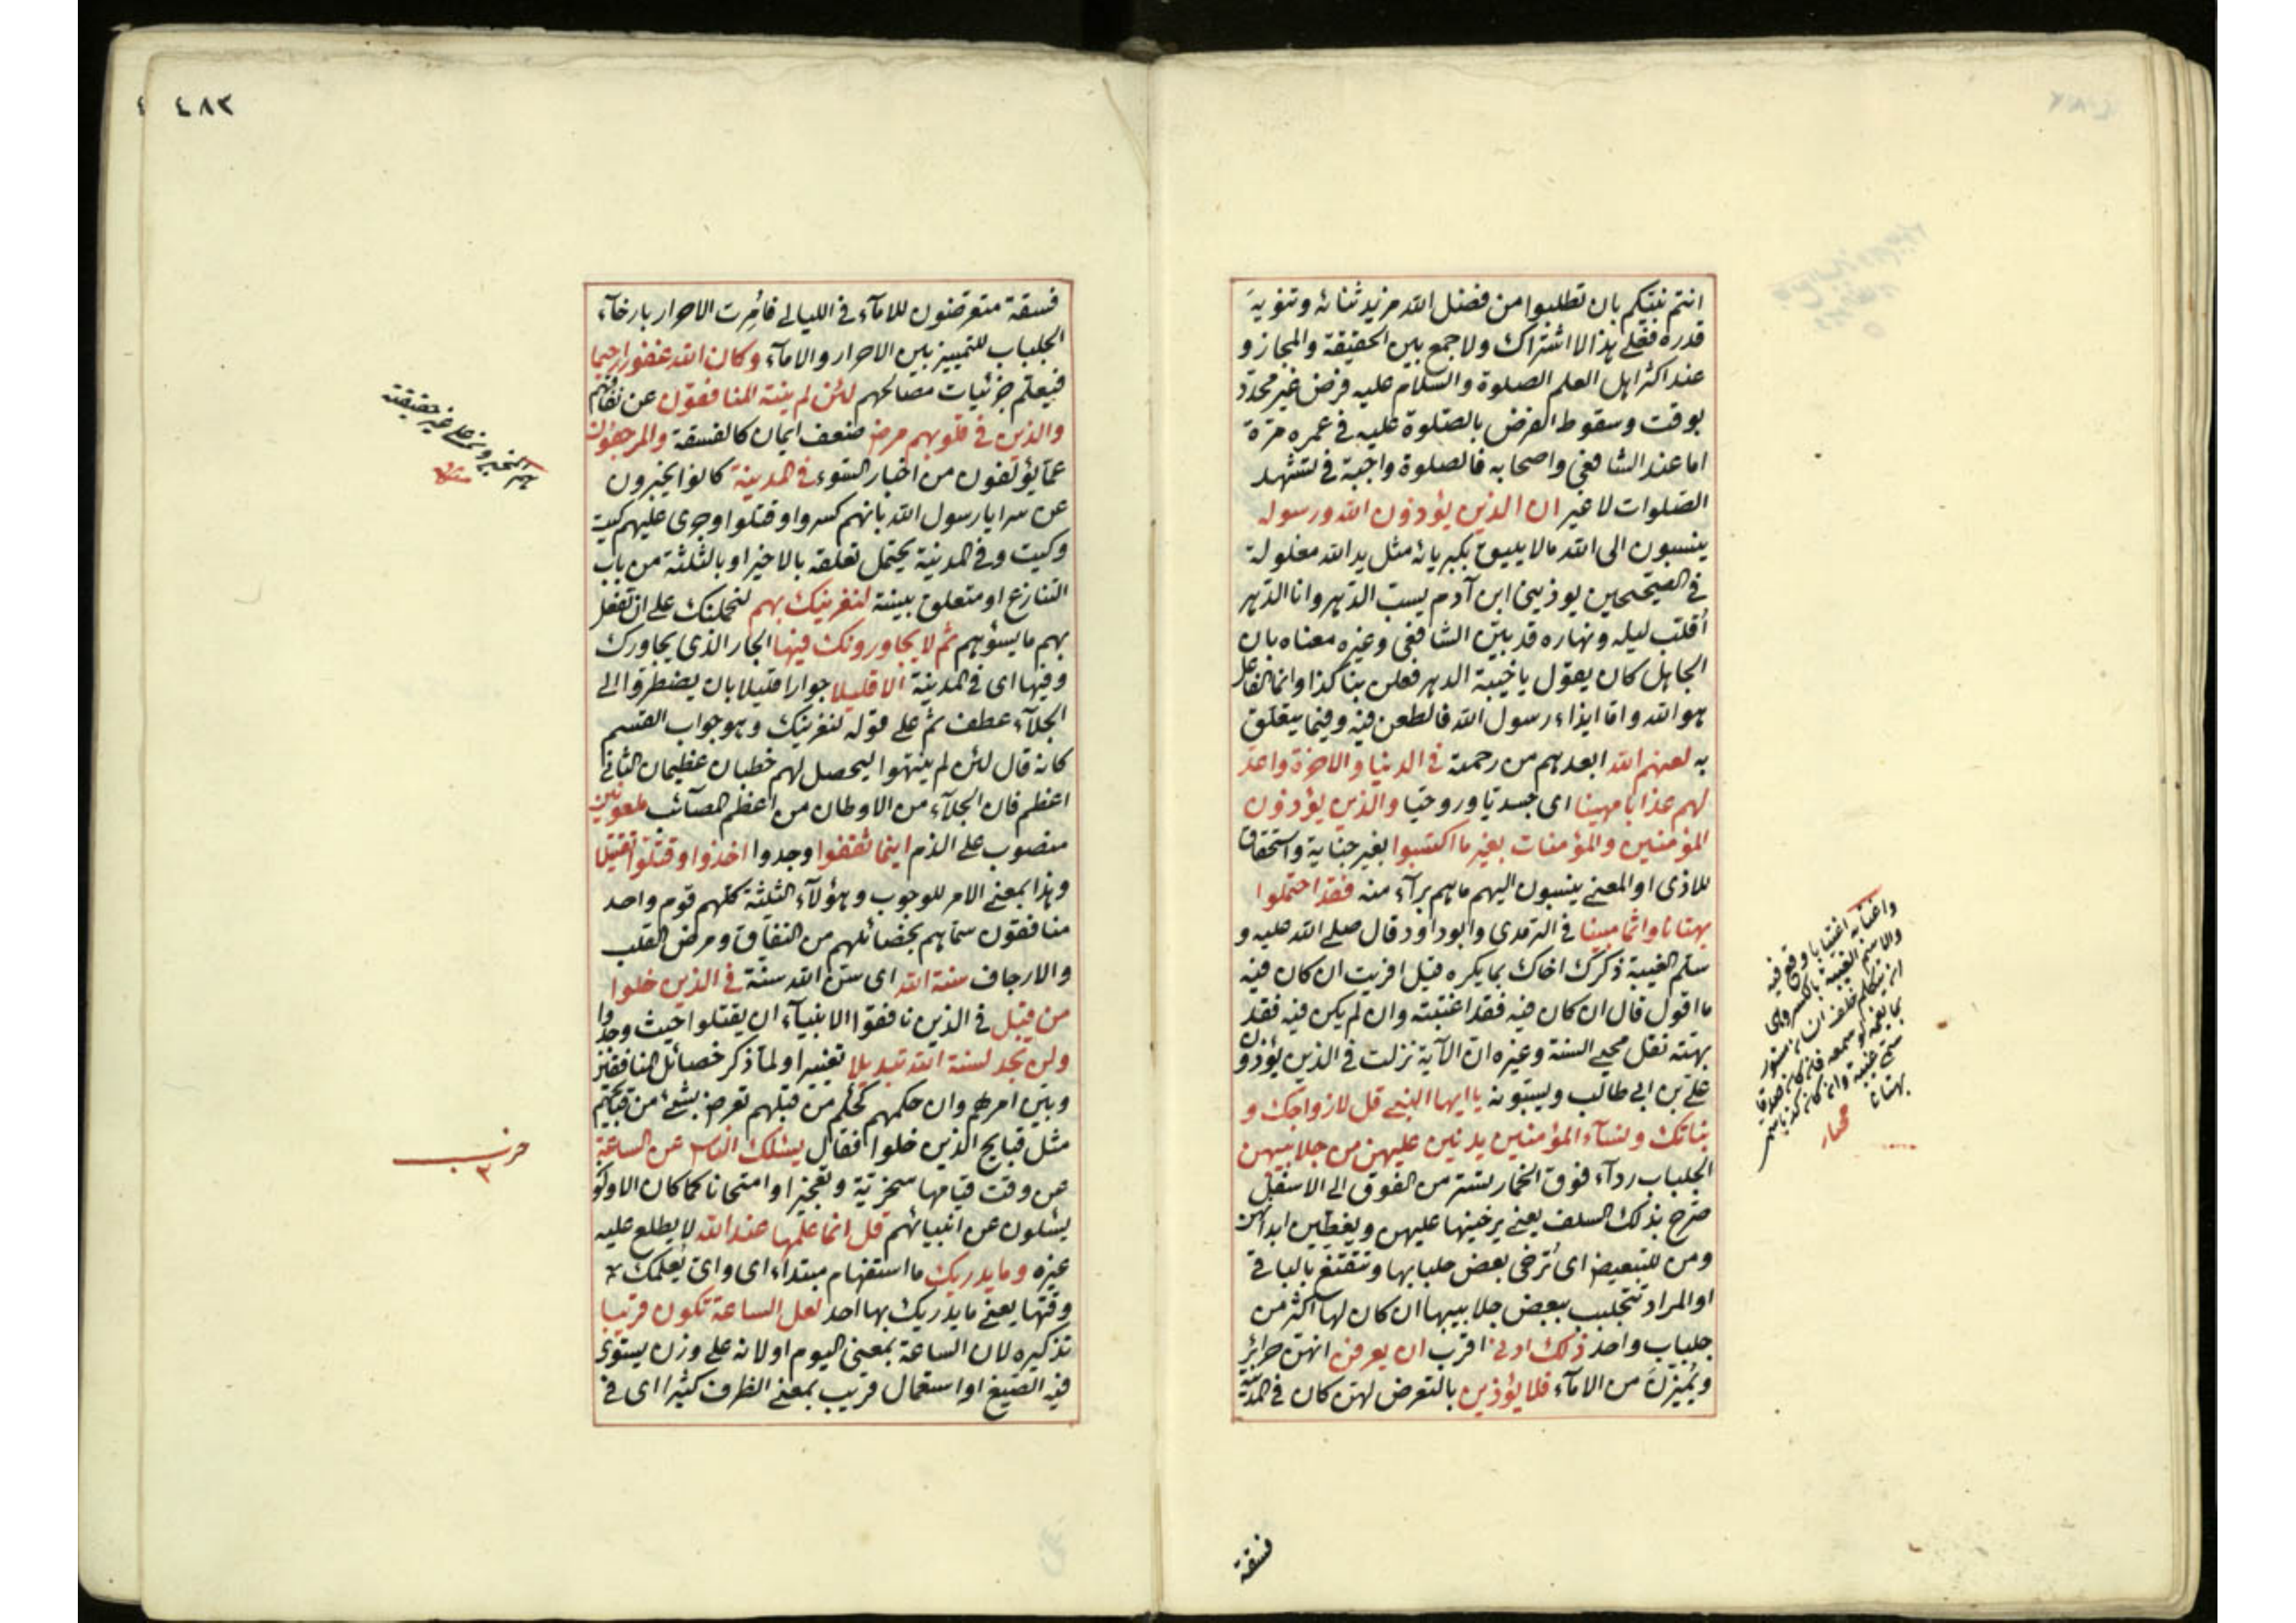 انتم نبيكم بان تطلبوا من فضل الله مزيد ثنائه وتنويه
قدره فعلى هذا لا اشتراك ولا جمع بين الحقيقة والمجاز و
عند اكثر اهل العلم الصلوة والسلام عليه فرض غير محدد
بوقت وسقوط الفرض بالصلوة عليه فى عمره مرة
اما عند الشافعى واصحابه فالصلوة واجبة فى تشهد
الصلوات لا غير ان الذين يؤذون الله ورسوله
ينسبون الى الله مالا يليق بكبريائه مثل يد الله مغلولة
فى الصحيحين يوذينى ابن آدم يسب الدهر وانا الدهر
أقلب ليله ونهاره قد بين الشافعى وغيره معناه بان
الجاهل كان يقول يا خيبة الدهر فعلن بنا كذا وانما الفاعل
هو الله واما ايذاء رسول الله فالطعن فيه وفيما يتعلق
به لعنهم الله ابعدهم من رحمته فى الدنيا والاخرة واعد
لهم عذابا مهينا اى جسديا وروحيا والذين يؤذون
المؤمنين والمؤمنات بغير ما اكتسبوا بغير جناية واستحقاق
للاذى او المعنى ينسبون اليهم ما هم برآء منه فقد احتملوا
بهتانا واثما مبينا فى الترمذى وابو داود قال صلى الله عليه و
سلم الغيبة ذكرك اخاك بما يكره قيل افريت ان كان فيه
ما اقول قال ان كان فيه فقد اغتبته وان لم يكن فيه فقد
بهته نقل محيى السنة وغيره ان الآية نزلت فى الذين يؤذون
على بن ابى طالب ويسبونه يا ايها النبى قل لازواجك و
بناتك ونسآء المؤمنين يدنين عليهن من جلابيبهن
الجلباب ردآء فوق الخمار يستر من الفوق الى الاسفل
صرح بذلك السلف يعنى يرخينها عليهن ويغطين ابدانهن
ومن للتبعيض اى ترخى بعض جلبابها وتتقنع بالباقى
او المراد تتجلبب ببعض جلابيبها ان كان لها اكثر من
جلباب واحد ذلك ادنى اقرب ان يعرفن انهن حرائر
ويميزن من الامآء فلا يؤذين بالتعرض لهن كان فى المدينة
واغتابه اغتيابا وقع فيه
والاسم الغيبة بالكسر وهى
ان يتكلم خلف انسان مستور
بما يغمه لو سمعه فان كان صدقا
سمى غيبة وان كان كذبا سمى
بهتانا
فسقة
٤٨٢
فسقة متعرضون للامآء فى الليالى فامرت الاحرار بارخآء
الجلباب للتمييز بين الاحرار والامآء وكان الله غفورا رحيما
فيعلم جزئيات مصالحهم لئن لم ينته المنافقون عن نفاقهم
والذين فى قلوبهم مرض ضعف ايمان كالفسقة والمرجفون
عما يؤلفون من اخبار السوء فى المدينة كانوا يخبرون
عن سرايا رسول الله بانهم كسروا وقتلوا وجرى عليهم كيت
وكيت وفى المدينة يحتمل تعلقه بالاخير او بالثلثة من باب
التنازع او متعلق بينته لنغرينك بهم لنحملنك على ان تفعل
بهم ما يسؤهم ثم لا يجاورونك فيها الجار الذى يجاورك
وفيها اى فى المدينة الا قليلا جوارا قليلا بان يضطروا الى
الجلآء عطف ثم على قوله لنغرينك وهو جواب القسم
كانه قال لئن لم ينتهوا ليحصل لهم خطبان عظيمان الثانى
اعظم فان الجلآء من الاوطان من اعظم المصآئب ملعونين
منصوب على الذم اينما ثقفوا وجدوا اخذوا وقتلوا تقتيلا
وهذا بمعنى الامر للوجوب وهؤلآء الثلثة كلهم قوم واحد
منافقون سماهم بخصائلهم من النفاق ومرض القلب
والارجاف سنة الله اى سن الله سنة فى الذين خلوا
من قبل فى الذين نافقوا الانبيآء ان يقتلوا حيث وجدوا
ولن تجد لسنة الله تبديلا تغييرا ولما ذكر خصائل المنافقين
وبين امرهم وان حكمهم كحكم من قبلهم تعرض بشئ من قبائحهم
مثل قبايح الذين خلوا فقال يسئلك الناس عن الساعة
عن وقت قيامها سخرية وتعجيزا او امتحانا كما كان الاولون
يسئلون عن انبيائهم قل انما علمها عند الله لا يطلع عليه
غيره وما يدريك ما استفهام مبتداء اى واى يعلمك
وقتها يعنى ما يدريك بها احد لعل الساعة تكون قريبا
تذكيره لان الساعة بمعنى اليوم او لانه على وزن يستوى
فيه الصيغ او استعمال قريب بمعنى الظرف كثيرا اى فى
حزب
٣